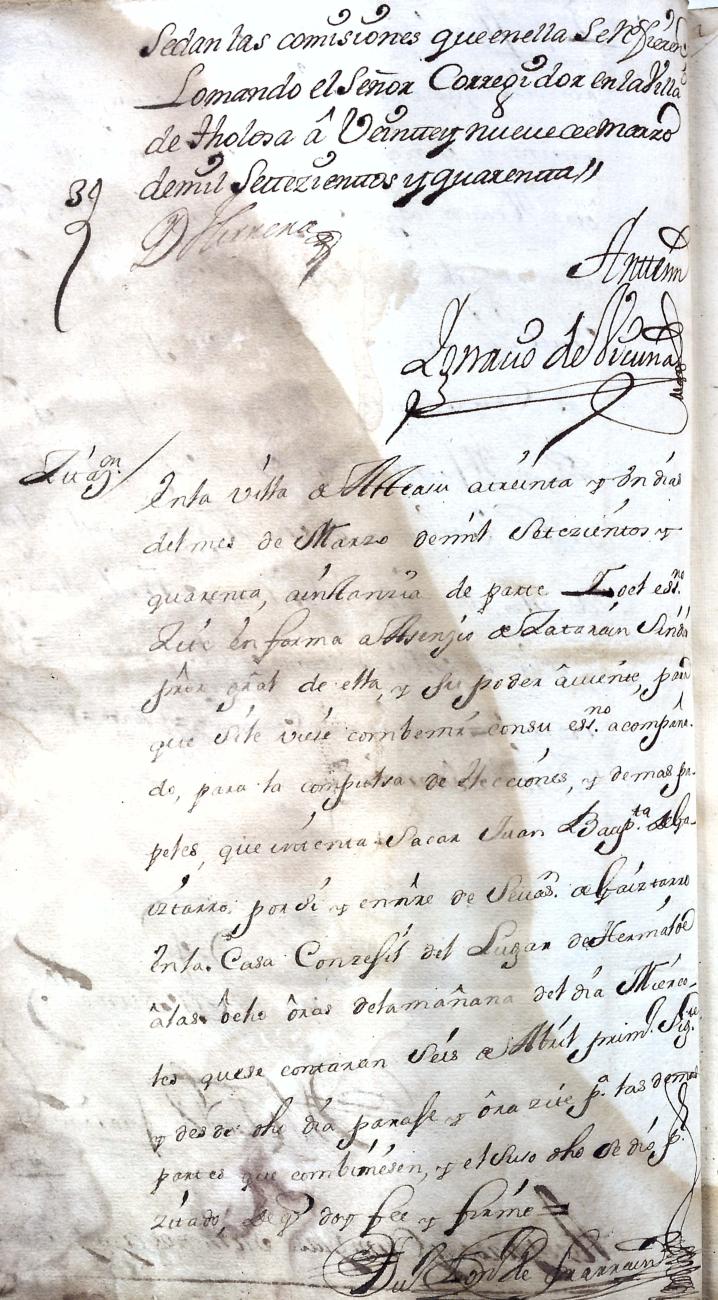 Sedan las comisiones que en ella Se
Lo mando el Señor Corregidor en la Villa
de tholosa â Veintte y nueve de Marzo
de mil Settezienttos y quarentta //
39
Antte mi
Ygnacio de Vicuña
Zitazn.
En la villa de atreinta y Un dias
del mes de Marzo de mil Setezientos y
quarenta, a instanzia de parte Yo el essno.
Zité en forma a Asenjio de Latarain Sindico
pror. gral de ella, y Su poder âviente, para
que Si le viese combenir con su essno. acompaña-
do, para la compulsa de elecciónes, y demas pa-
peles, que intenta Sacar Juan Bapta. de
por Si y en nre de Sevan. de
En la Casa Conzejil del Lugar de Hernialde
âlas ôcho ôras dela mañana del día Miérco-
les que se contaran Séis de Abril primo. Sigte.
y desde dho día paraje y ôra zité pa. las demas
partes que combiniésen, y el suso dho se dió pr.
zitado, de q. doy fee y firmé =